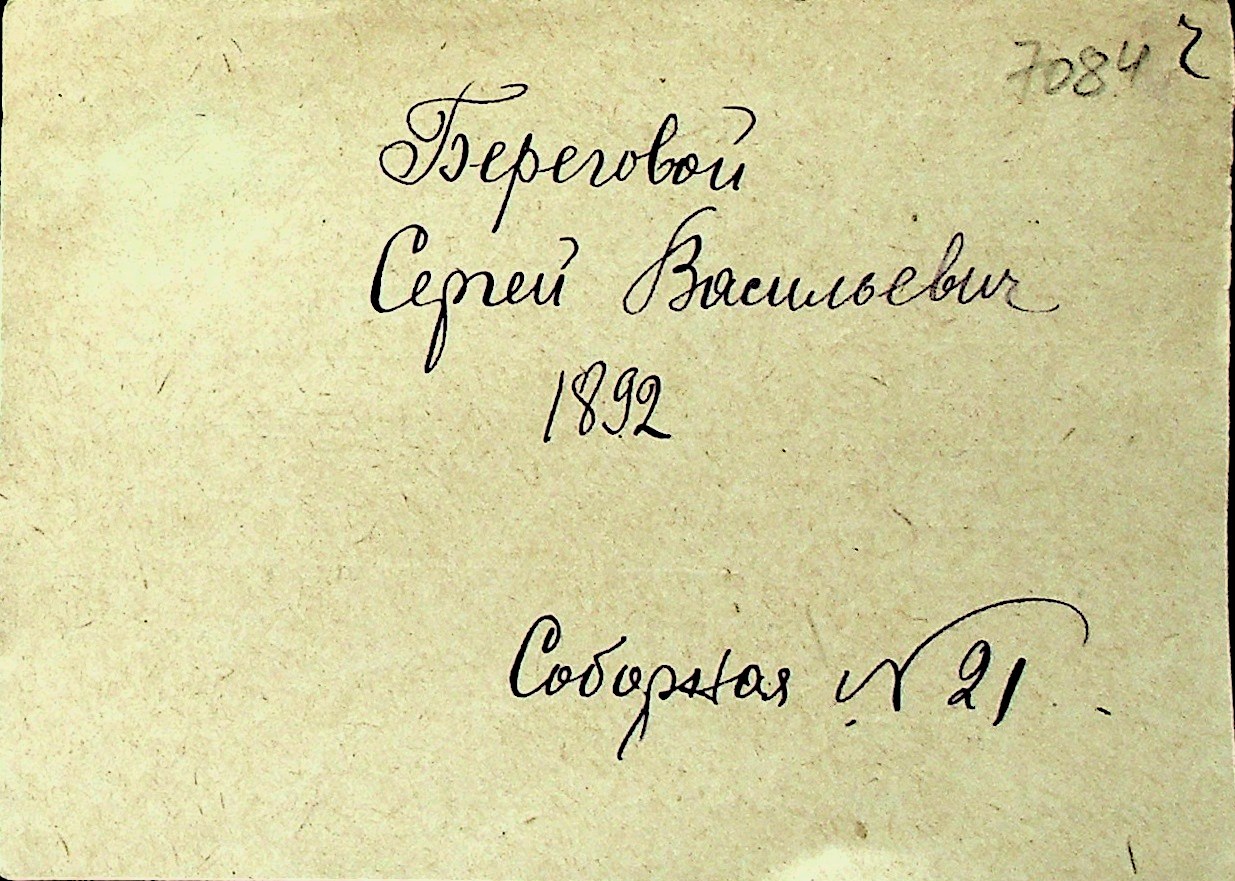 7084 ч
Береговой
Сергей Васильевич
1892
Соборная № 21.